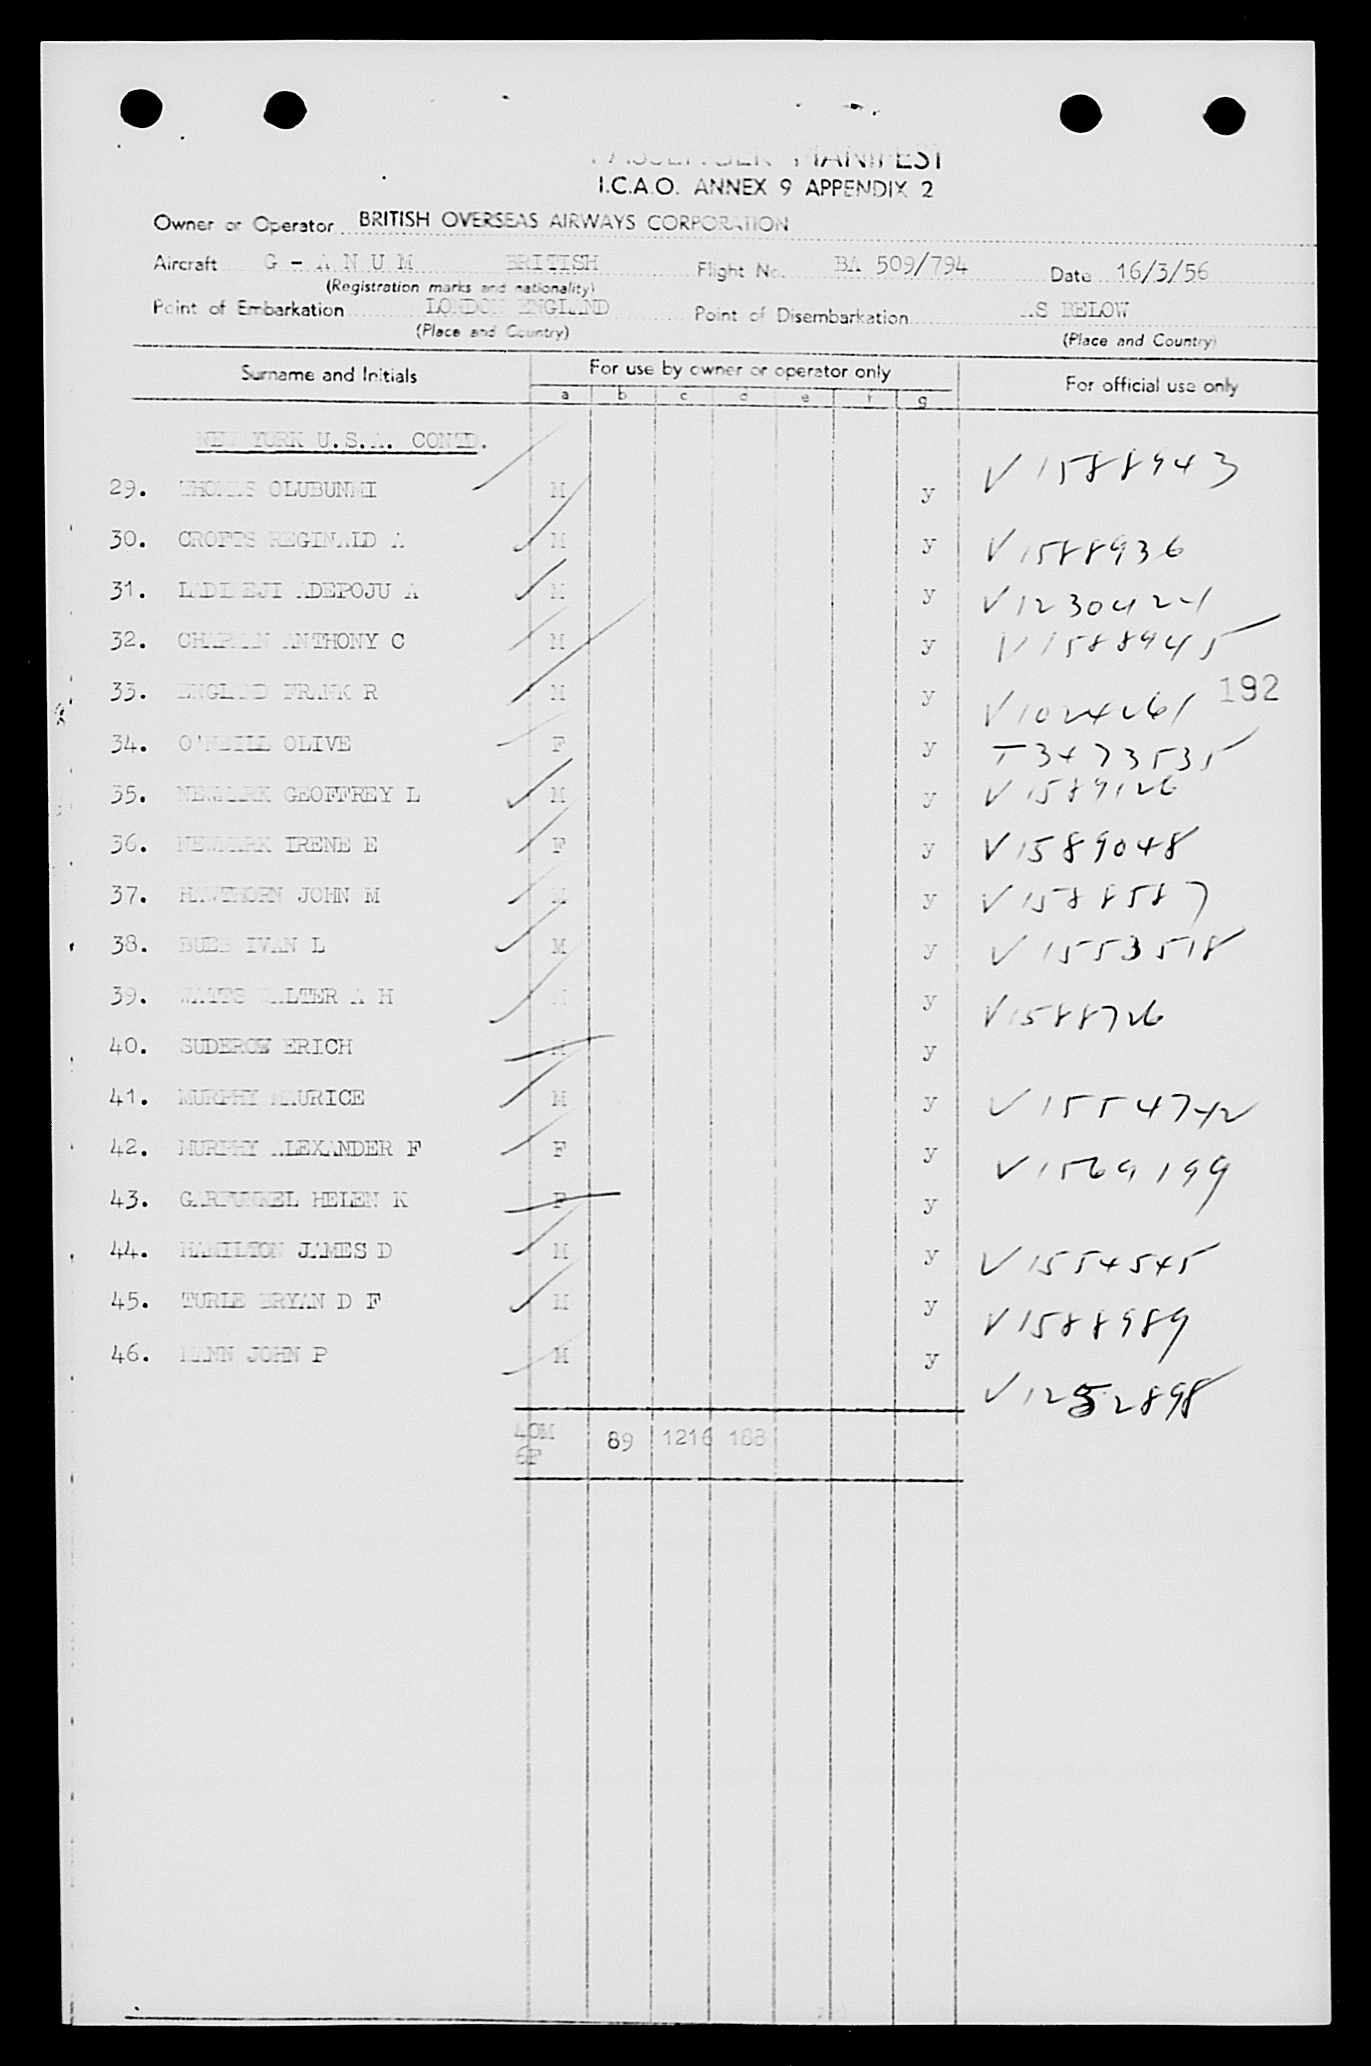 PASSENGER MANIFEST
I.C.A.O. ANNEX 9 APPENDIX 2
Owner or Operator BRITISH OVERSEAS AIRWAYS CORPORATION
Aircraft G - A N U M BRITISH Flight No. BA 509/794 Date 16/3/56
(Registration marks and nationality)
Point of Embarkation LONDON ENGLAND Point of Disembarkation AS BELOW
(Place and Country) (Place and Country)
Surname and Initials For use by owner or operator only For official use only
a b c d e f g
NEW YORK U.S.A. CONTD.
29. THOMAS OLUBUNMI M y V1588943
30. CROFTS REGINALD A M y V1588936
31. LADIMEJI ADEPOJU A M y V1230424
32. CHAPMAN ANTHONY C M y V1588945
33. ENGLAND FRANK R M y V1024261
192
34. O'NEILL OLIVE F y T3473535
35. NEWMARK GEOFFREY L M y V1589126
36. NEWMARK IRENE E F y V1589048
37. HAWTHORN JOHN M M y V1588587
38. IVAN L M y V1553518
39. WATTS WALTER A H M y V1588726
40. SUDEROW ERICH M y
41. MURPHY MAURICE M y V1554742
42. MURPHY ALEXANDER F F y V1569199
43. GARFUNKEL HELEN K F y
44. HAMILTON JAMES D M y V1554545
45. TURLE BRYAN D F M y V1588989
46. MANN JOHN P M y V1252898
40M 89 1216 188
6F